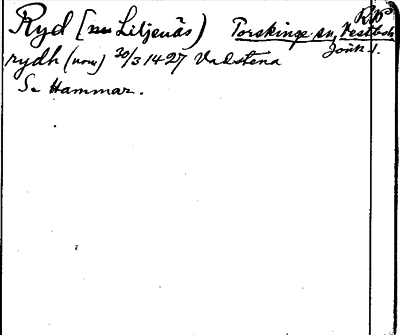 RAP
Ryd (nu Liljenäs) Torskinge sn, Västbo hd
Jönk. l.
rydh (now) 30/3 1427 Vadstena
Se Hammar.